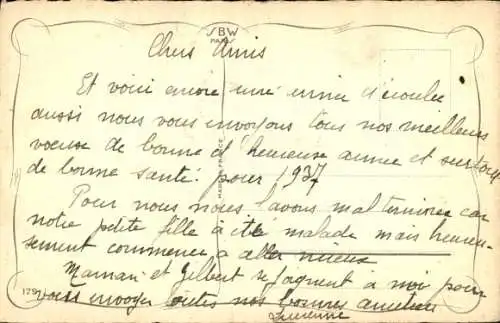 SBW
PARIS
Chers Amis
Et voici encore une année d'écoulée
aussi nous vous envoyons tous nos meilleurs
voeux de bonne et heureuse année et surtout
de bonne santé pour 1937
Pour nous nous l'avons mal terminée car
notre petite fille a été malade mais heureu-
sement commence a aller mieux
Maman et Gilbert se joignent à moi pour
vous envoyer toutes nos bonnes amitiés
Lucienne
129